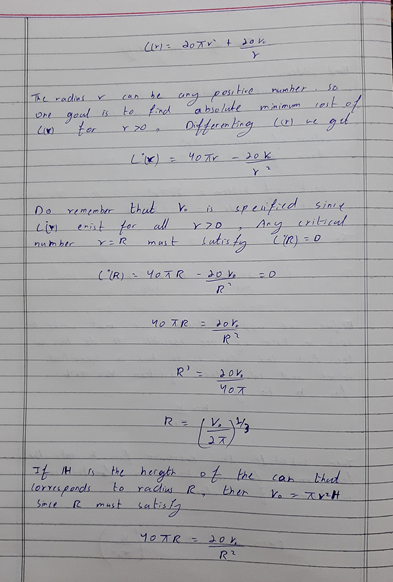 C(r) = 20πr² + 20V₀/r
The radius r can be any positive number. so
one goal is to find absolute minimum cost of
C(r) for r>0. Differenting C(r) we get
C'(r) = 40πr - 20V₀/r²
Do remember that V₀ is specified since
C'(r) exist for all r>0. Any critical
number r=R must satisfy C'(R)=0
C'(R) = 40πR - 20V₀/R² = 0
40πR = 20V₀/R²
R³ = 20V₀/40π
R = (V₀/2π)^1/3
If H is the height of the can that
corresponds to radius R, then V₀ = πr²H
since R must satisfy
40πR = 20V₀/R²